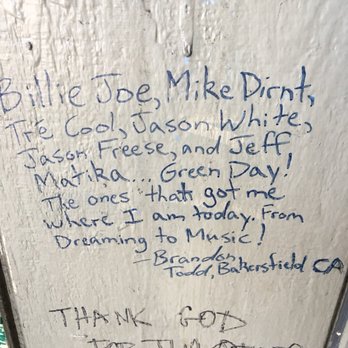 Billie Joe, Mike Dirnt,
Tré Cool, Jason White,
Jason Freese, and Jeff
Matika... Green Day!
The ones that got me
where I am today. From
Dreaming to Music!
- Brandon
Todd, Bakersfield CA
THANK GOD
FOR